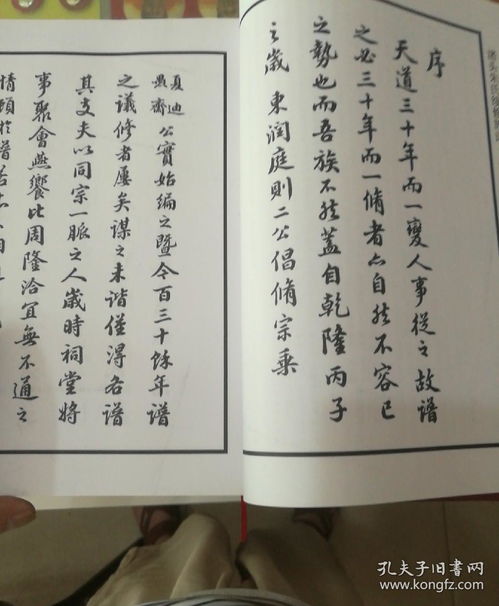 序
天道三十年而一變人事從之故譜
之必三十年而一脩者亦自然不容已
之勢也而吾族不然蓋自乾隆丙子
之歲 東潤庭則二公倡脩宗乘
夏迪
齋
公實始編之暨今百三十餘年譜
之議修者屢矣謀之未諧僅得各譜
其支夫以同宗一脈之人歲時祠堂將
事聚會燕饗比周隆洽宜無不通之
情顧於譜若
孔夫子旧书网
www.kongfz.com